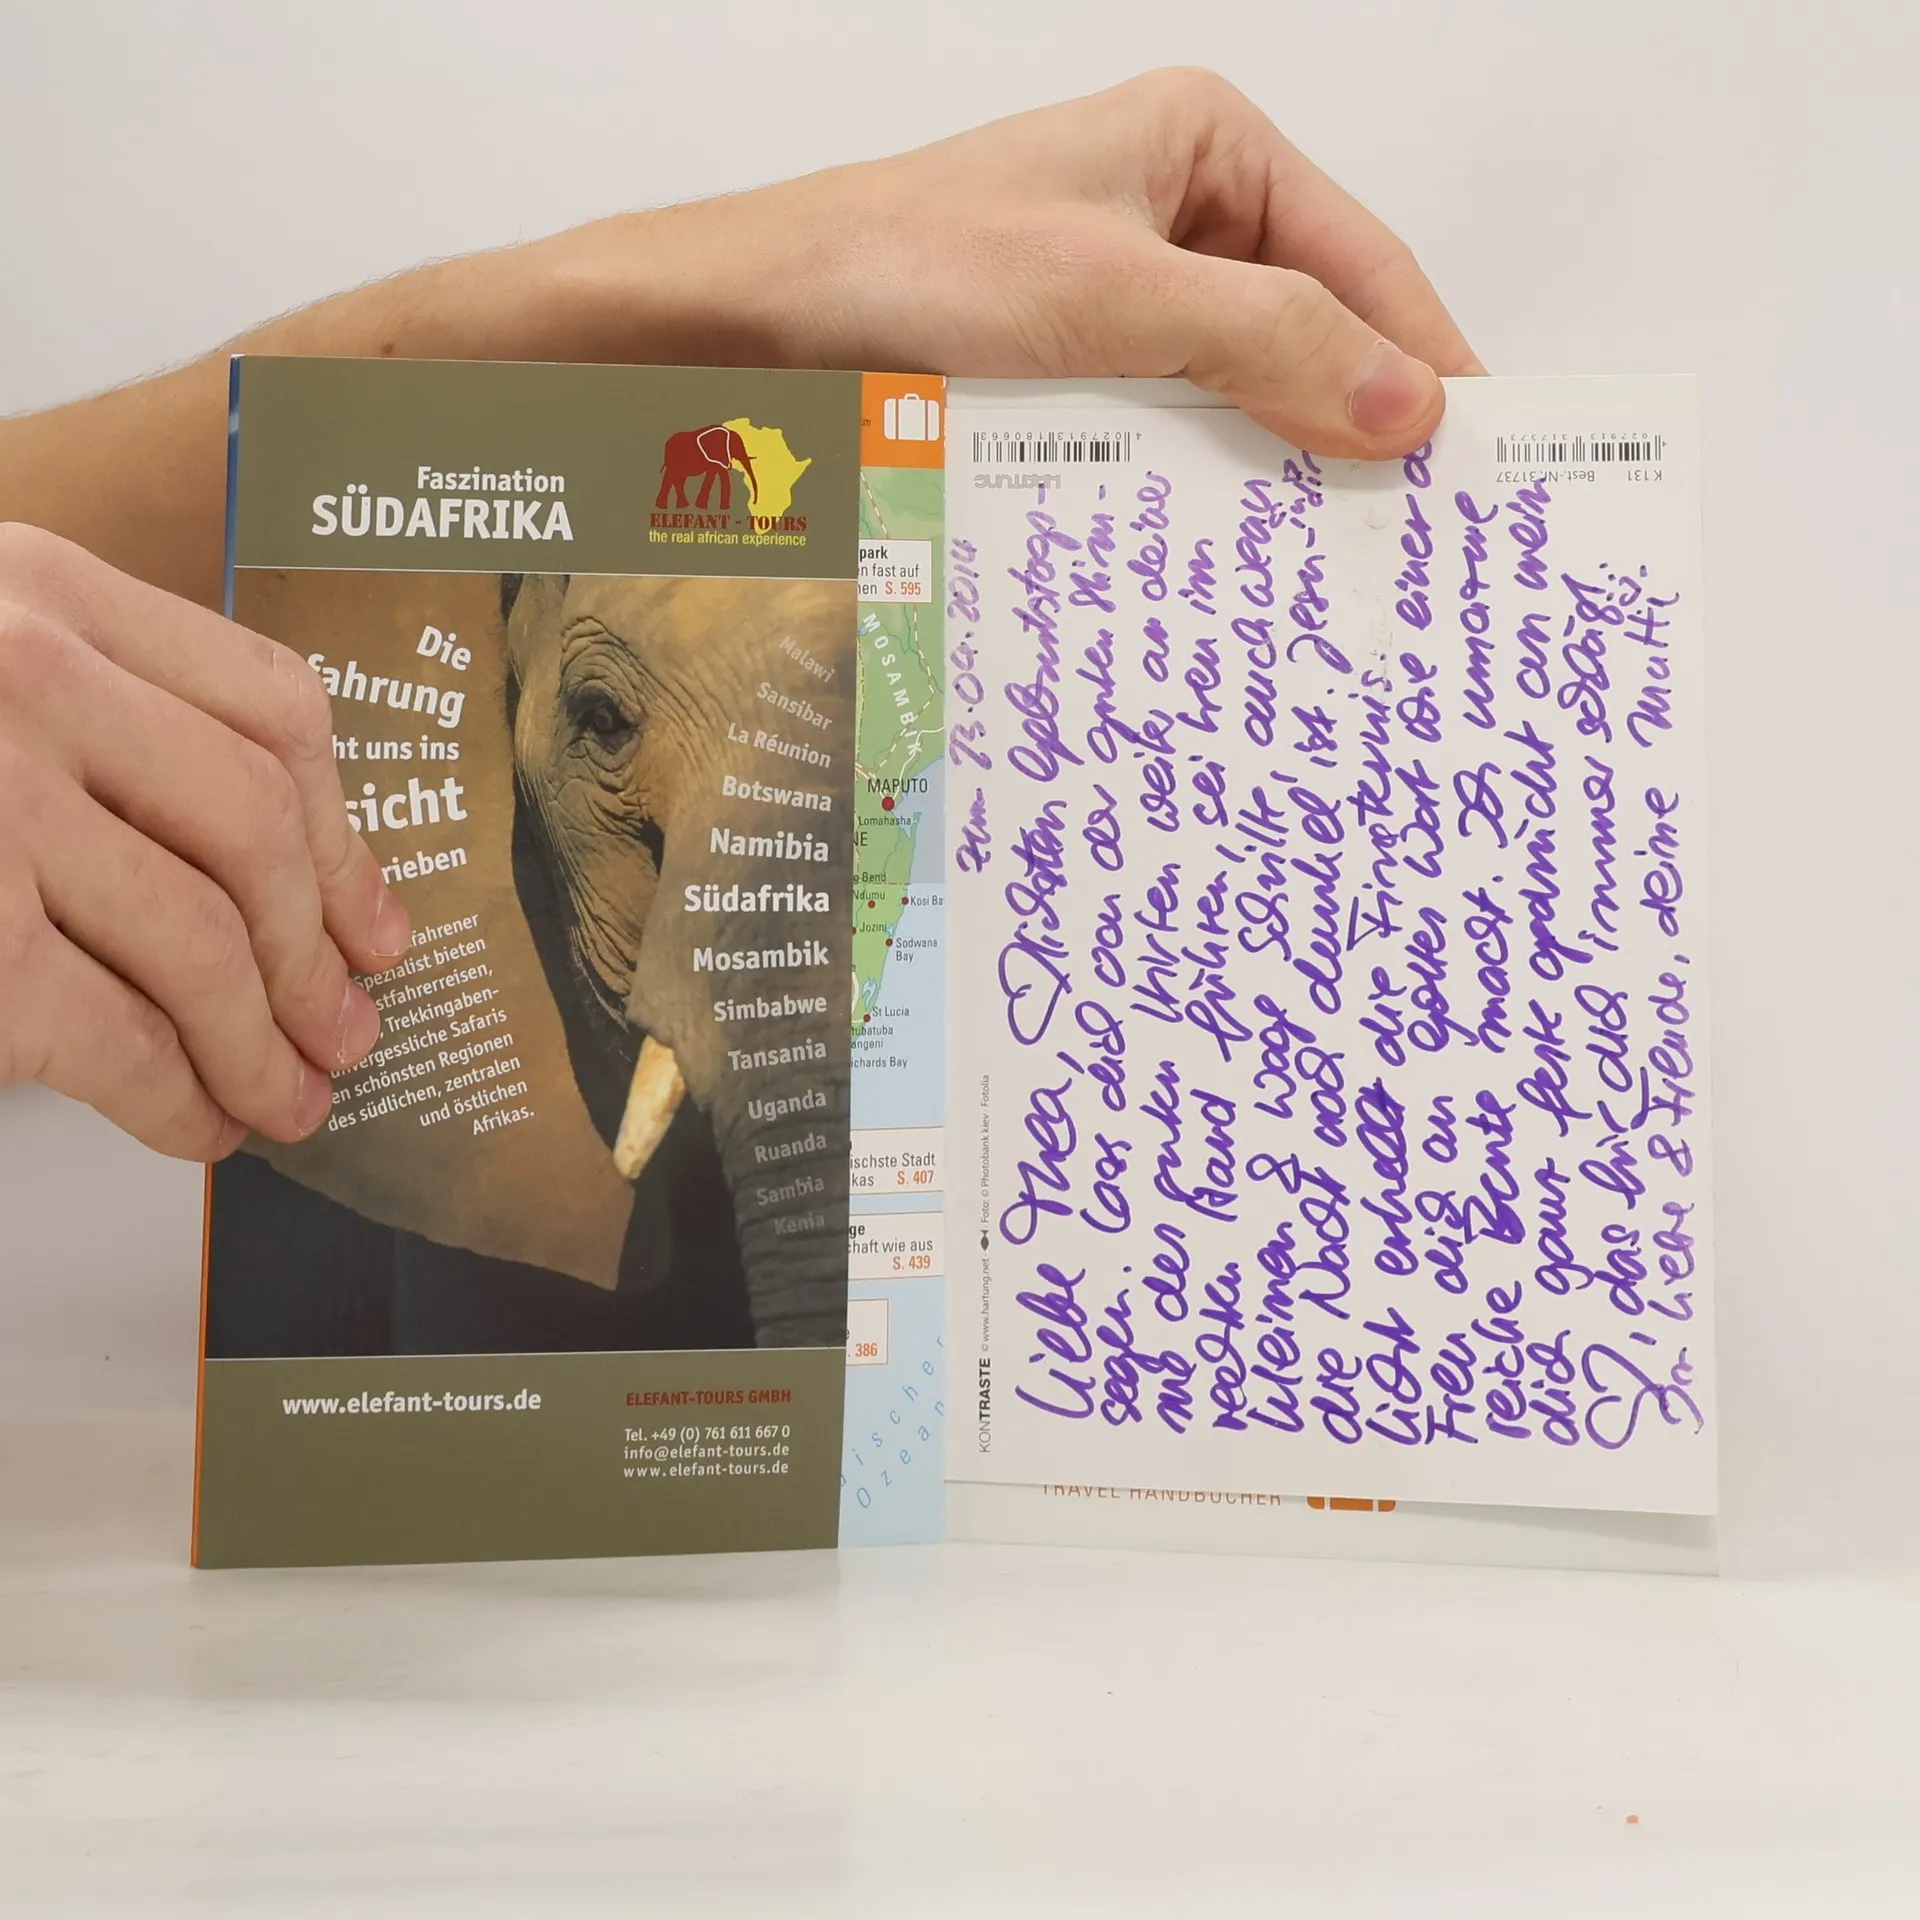 Faszination
SÜDAFRIKA
ELEFANT - TOURS
the real african experience
Die
fahrung
ht uns ins
sicht
rieben
fahrener
Spezialist bieten
stfahrerreisen,
, Trekkingaben-
unvergessliche Safaris
en schönsten Regionen
des südlichen, zentralen
und östlichen
Afrikas.
Malawi
Sansibar
La Réunion
Botswana
Namibia
Südafrika
Mosambik
Simbabwe
Tansania
Uganda
Ruanda
Sambia
Kenia
www.elefant-tours.de
ELEFANT-TOURS GMBH
Tel. +49 (0) 761 611 667 0
info@elefant-tours.de
www.elefant-tours.de
park
n fast auf
nen S. 595
MOSAMBIK
MAPUTO
Lomahasha
NE
g-Bend
Ndumu
Kosi Ba
Jozini
Sodwana
Bay
St Lucia
tubatuba
angeni
ichards Bay
ischste Stadt
kas S. 407
ge
chaft wie aus
S. 439
. 386
ischer
Ozean
4 027913 180663
HARTUNG
4 027913 317373
K 131 Best.-Nr. 31737
KONTRASTE © www.hartung.net · Foto: © Photobank kiev · Fotolia
Zum 23.04.2014
Liebe Thea, Geburtstags-
segen. Lass dich von der guten Stim-
me des guten Hirten weiter an deiner
rechten Hand führen, sei treu im
kleinen & wage Schritte, auch wenn
die Nacht noch dunkel ist. Jesu
Licht erhellt die Finsternis.
Freu dich an Gottes Wort wie einer der
reiche Beute macht. Ich umarme
dich ganz feste gedrückt an mein
das für dich immer schlägt
In Liebe & Freude, deine Mutti
TRAVEL HANDBÜCHER